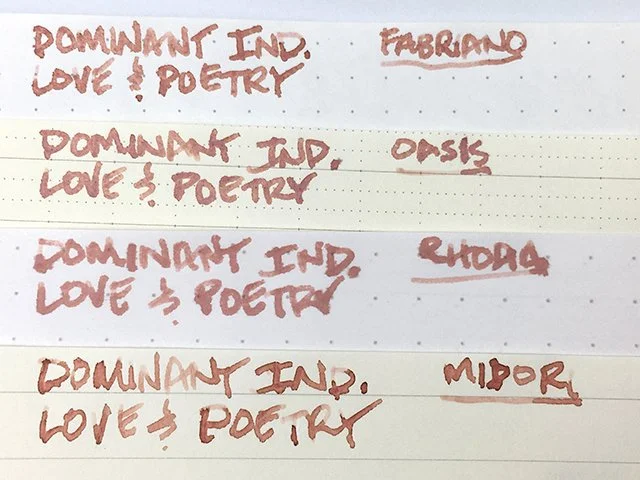 DOMINANT IND. FABRIANO
LOVE & POETRY
DOMINANT IND. OASIS
LOVE & POETRY
DOMINANT IND. RHODIA
LOVE & POETRY
DOMINANT IND. MIDORI
LOVE & POETRY